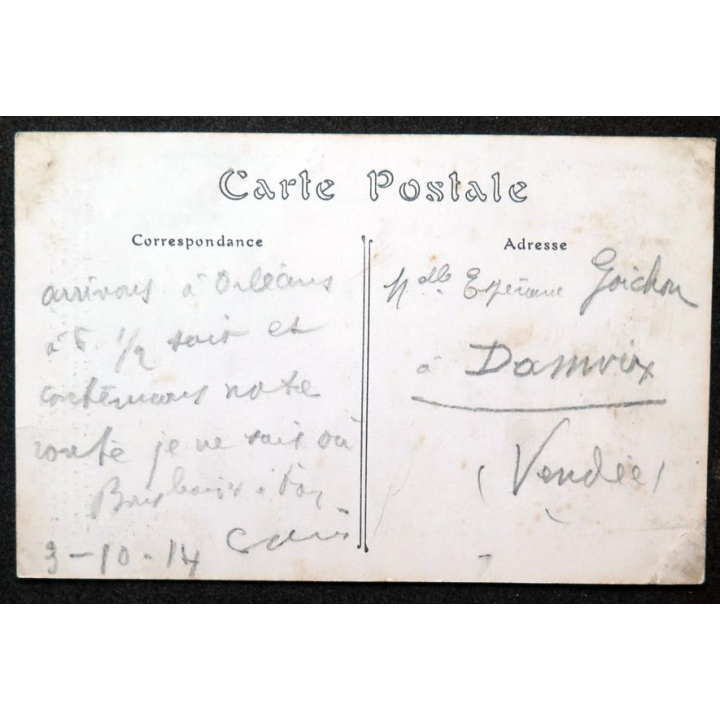 Carte Postale
Correspondance
arrivons à Orléans
à 5 1/2 soir et
continuons notre
route je ne sais où
Bons baisers
3-10-14
Adresse
Mdlle Espérance Goichon
à Damvix
(Vendée)